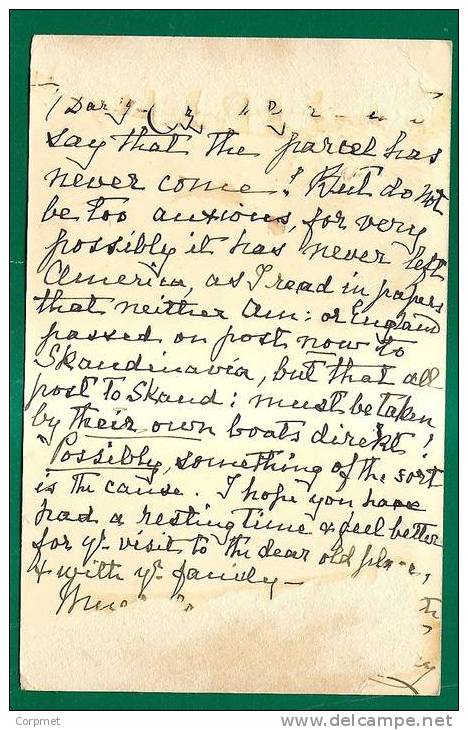 say that the parcel has
never come! But do not
be too anxious, for very
possibly it has never left
America, as I read in papers
that neither Am: or England
passed on post now to
Skandinavia, but that all
post to Skand: must be taken
by their own boats direkt!
Possibly, something of the sort
is the cause. I hope you have
had a resting time & feel better
for yr. visit to the dear old place,
& with yr. family —
Corpmet
www.delcampe.net